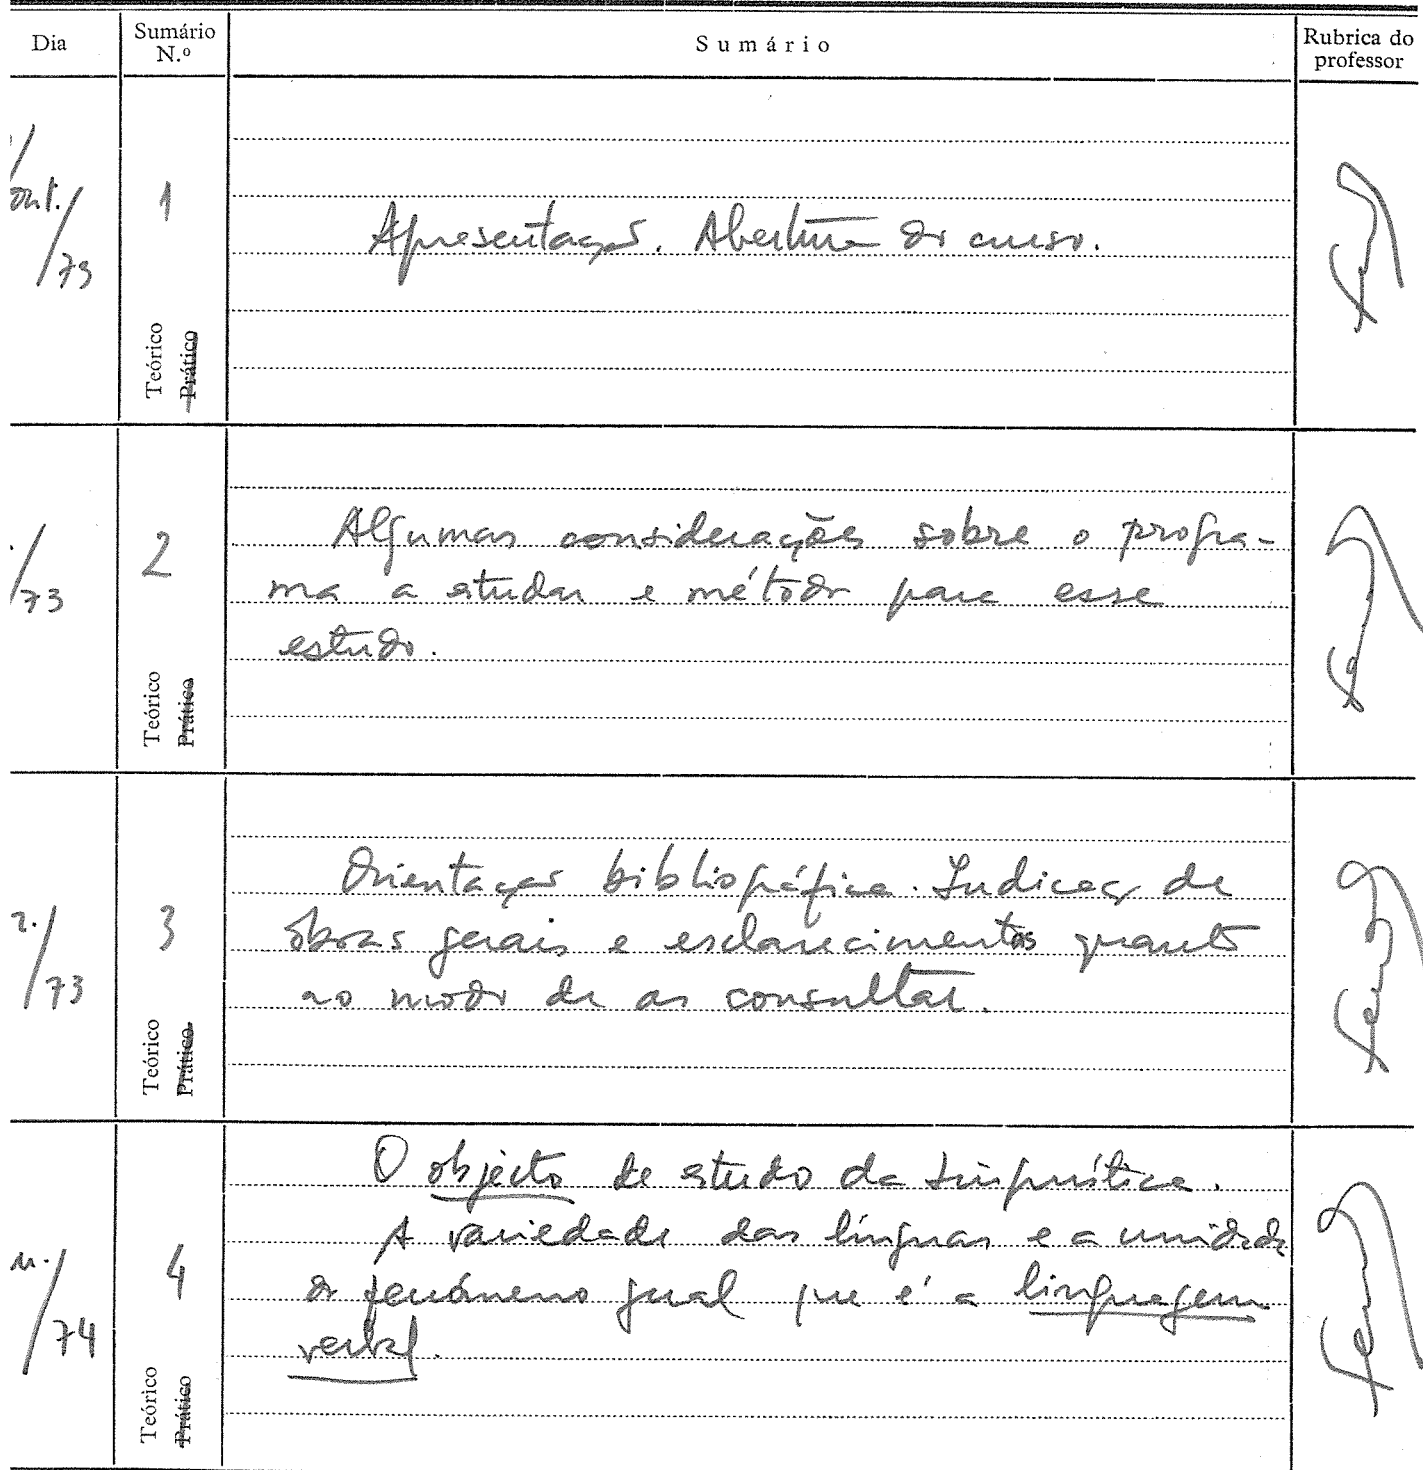 Dia
Sumário N.º
Sumário
Rubrica do professor
out./73
1
Teórico
Prático
Apresentação. Abertura do curso.
/73
2
Teórico
Prático
Algumas considerações sobre o progra-
ma a estudar e método para esse
estudo.
/73
3
Teórico
Prático
Orientação bibliográfica. Índices de
obras gerais e esclarecimentos quanto
ao modo de as consultar.
/74
4
Teórico
Prático
O objecto de estudo da Linguística.
A variedade das línguas e a unidade
do fenómeno geral que é a linguagem
verbal.